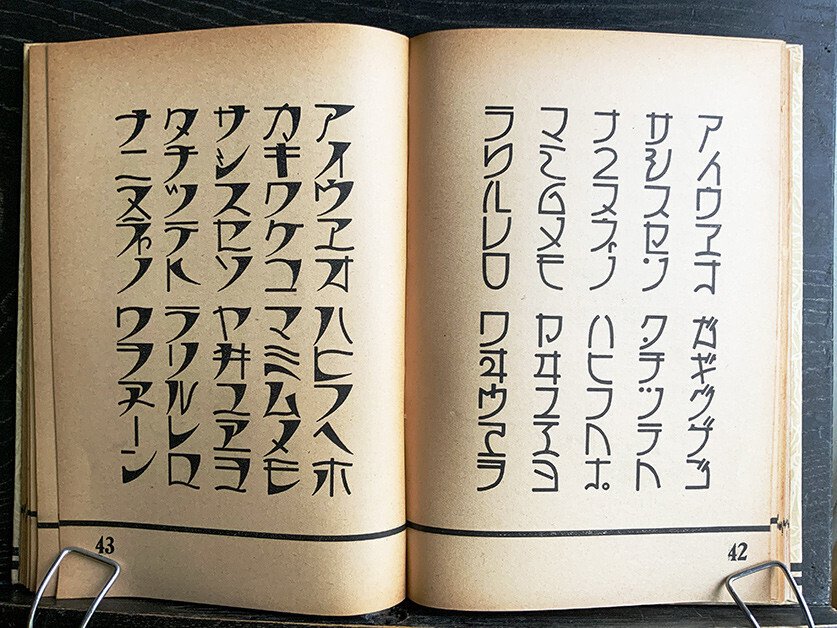 アイウヱオ ガギグゲゴ
サシスセソ タチツテト
ナニヌネノ ハヒフヘホ
マミムメモ ヤヰユヱヨ
ラリルレロ ワヰウヱヲ
42
アイウヱオ ハヒフヘホ
カキクケコ マミムメモ
サシスセソ ヤヰユヱヨ
タチツテト ラリルレロ
ナニヌネノ ワヲヱーン
43